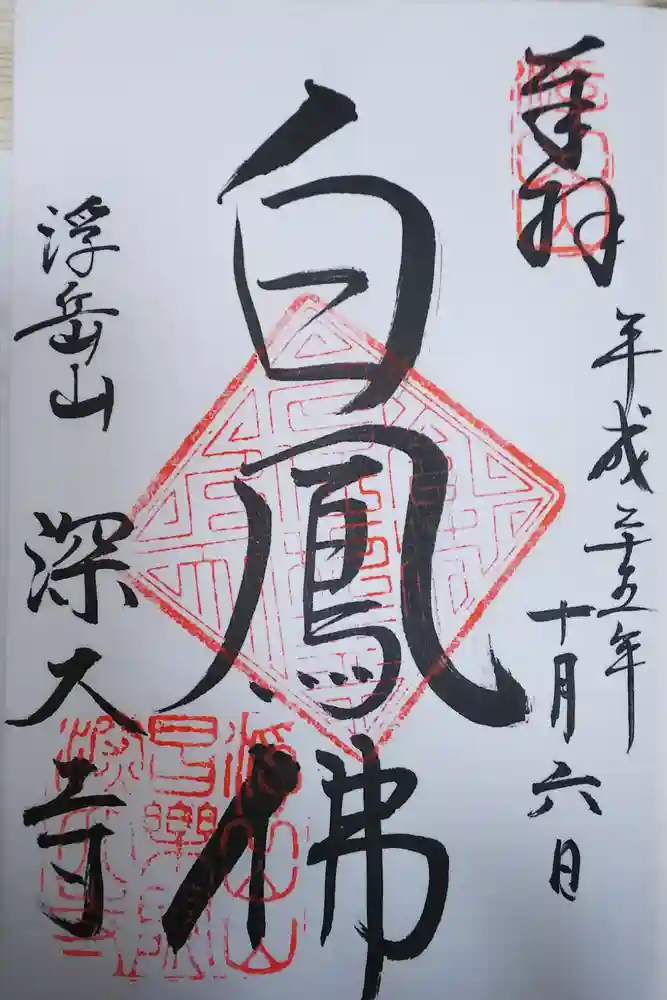 奉拝
平成二十五年
十月六日
白鳳佛
浮岳山 深大寺